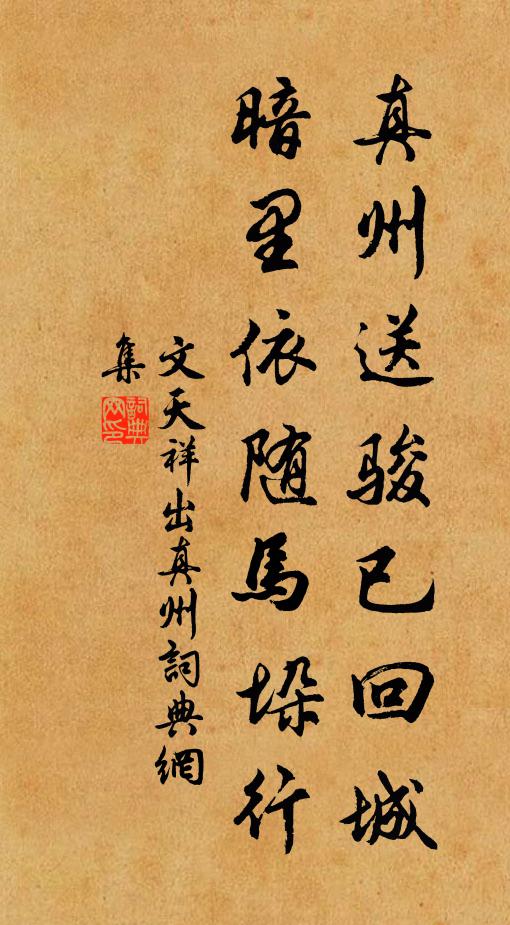 真州送骏已回城
暗里依随馬垛行
文天祥出真州詞典網
集
詞典
网印